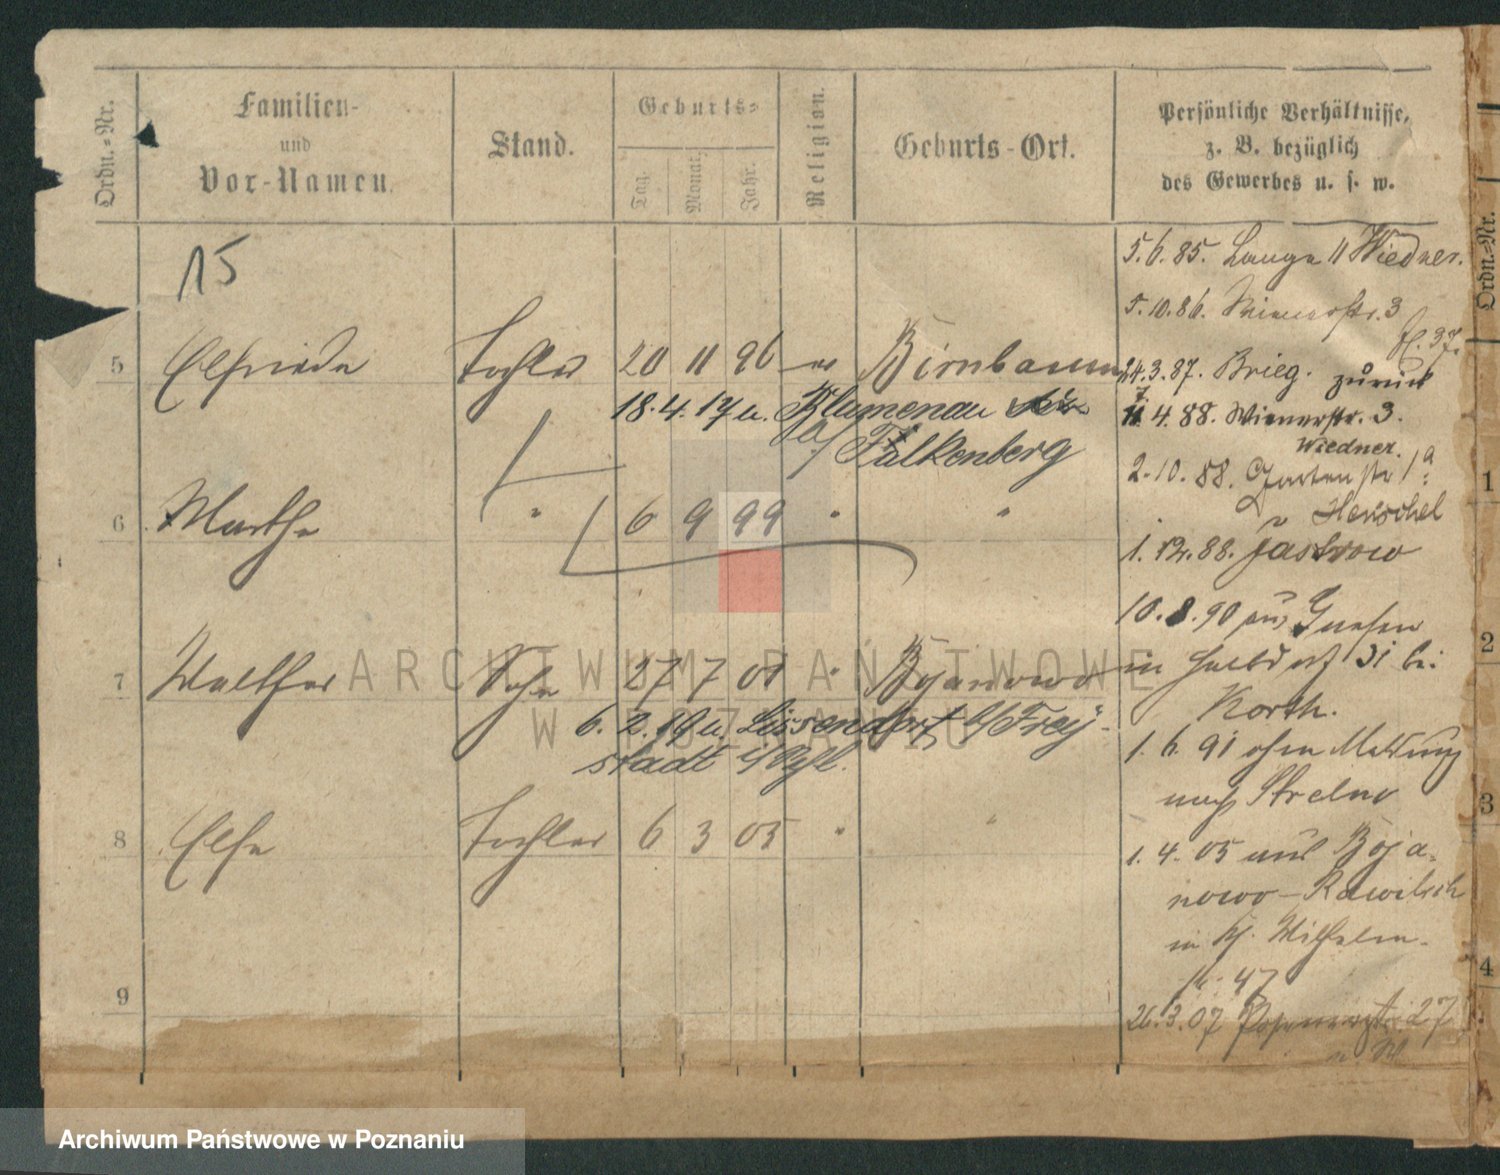 Ordn.-Nr.
Familien-
und
Vor-Namen.
Stand.
Geburts-
Tag.
Monat.
Jahr.
Religion.
Geburts-Ort.
Persönliche Verhältnisse,
z. B. bezüglich
des Gewerbes u. s. w.
15
5 Elfriede Tochter 20 11 96 Birnbaum
18.4.17 u. Blumenau
Falkenberg
6 Marthe " 6 9 99 " "
7 Walther Sohn 27 7 01 " Bojanowo
6. 2. 19 u. Lissendorf b/Frey-
stadt
8 Else Tochter 6 3 05 " "
9
5.6.85. Lange 11 Wiedner.
5.10.86. Wienerstr. 3
24.3.87. Brieg. zurück
4.88. Wienerstr. 3.
Wiedner.
2.10.88. Gartenstr 1a
Herschel
1.12.88. Jastrow
10.8.90 aus Gnesen
in Halbdorf 31 bei
Korth.
1.6.91 ohne Meldung
nach Strelno
1.4.05 aus Boja-
nowo-Rawitsch
in Wilhelm-
str. 47
26.3.07 27
Ordn.-Nr.
1
2
3
4
ARCHIWUM PAŃSTWOWE
W POZNANIU
Archiwum Państwowe w Poznaniu